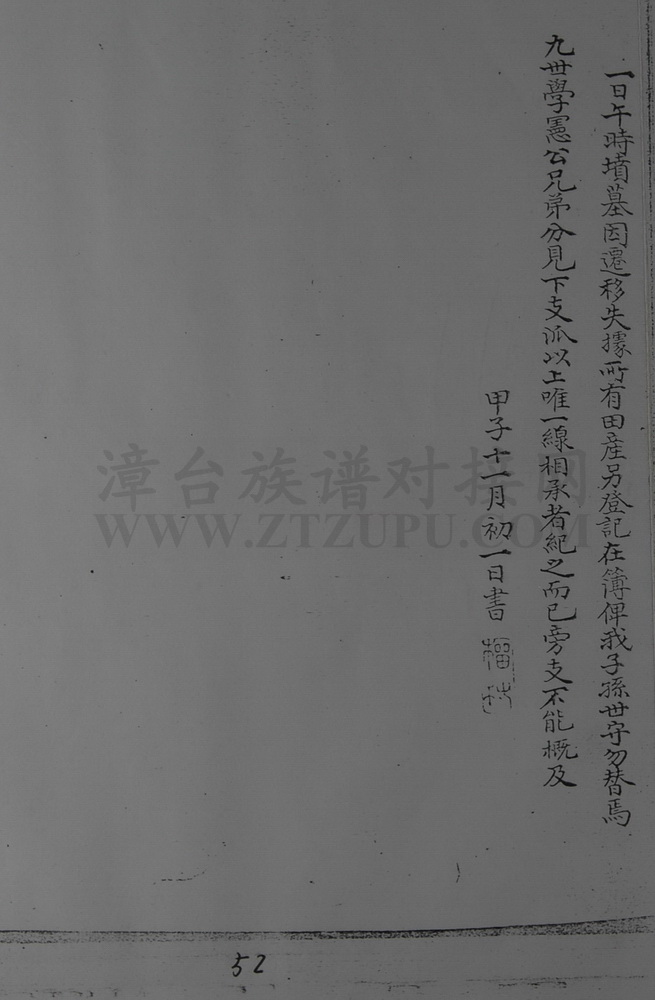 一日午時墳墓因遷移失據所有田産另登記在簿俾我子孫世守勿替焉
九世學憲公兄弟分見下支派以上唯一線相承者紀之而已旁支不能概及
甲子十一月初一日書
漳台族谱对接网
WWW.ZTZUPU.COM
52